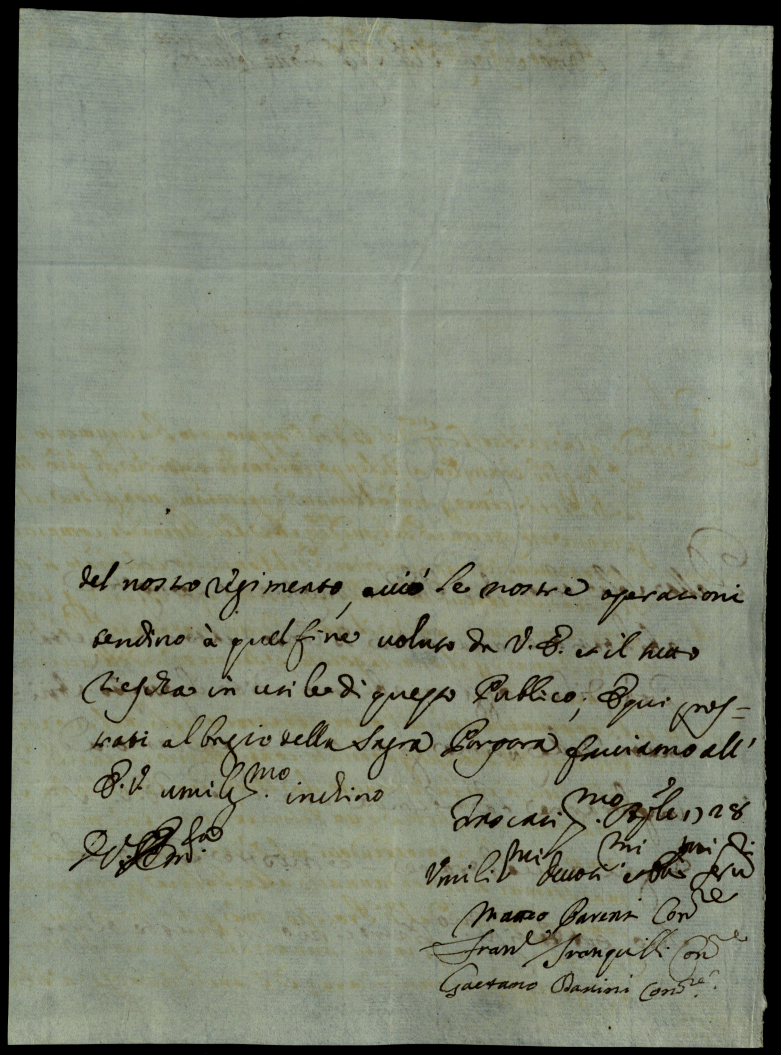 del nostro regimento, acciò le nostre operazioni
tendino à quel fine voluto da V. E. et il tutto
riesca in utile di questo Publico; E qui pros=
trati al bagio della Sagra Porpora facciamo all'
E. V. umiliss.mo inchino
Di V. Em.za
Aprle 1728
Umilis.mi devotis.mi
Matteo Parenti Con.re
Fran.co Tranquilli Con.re
Gaetano Panini Con.re